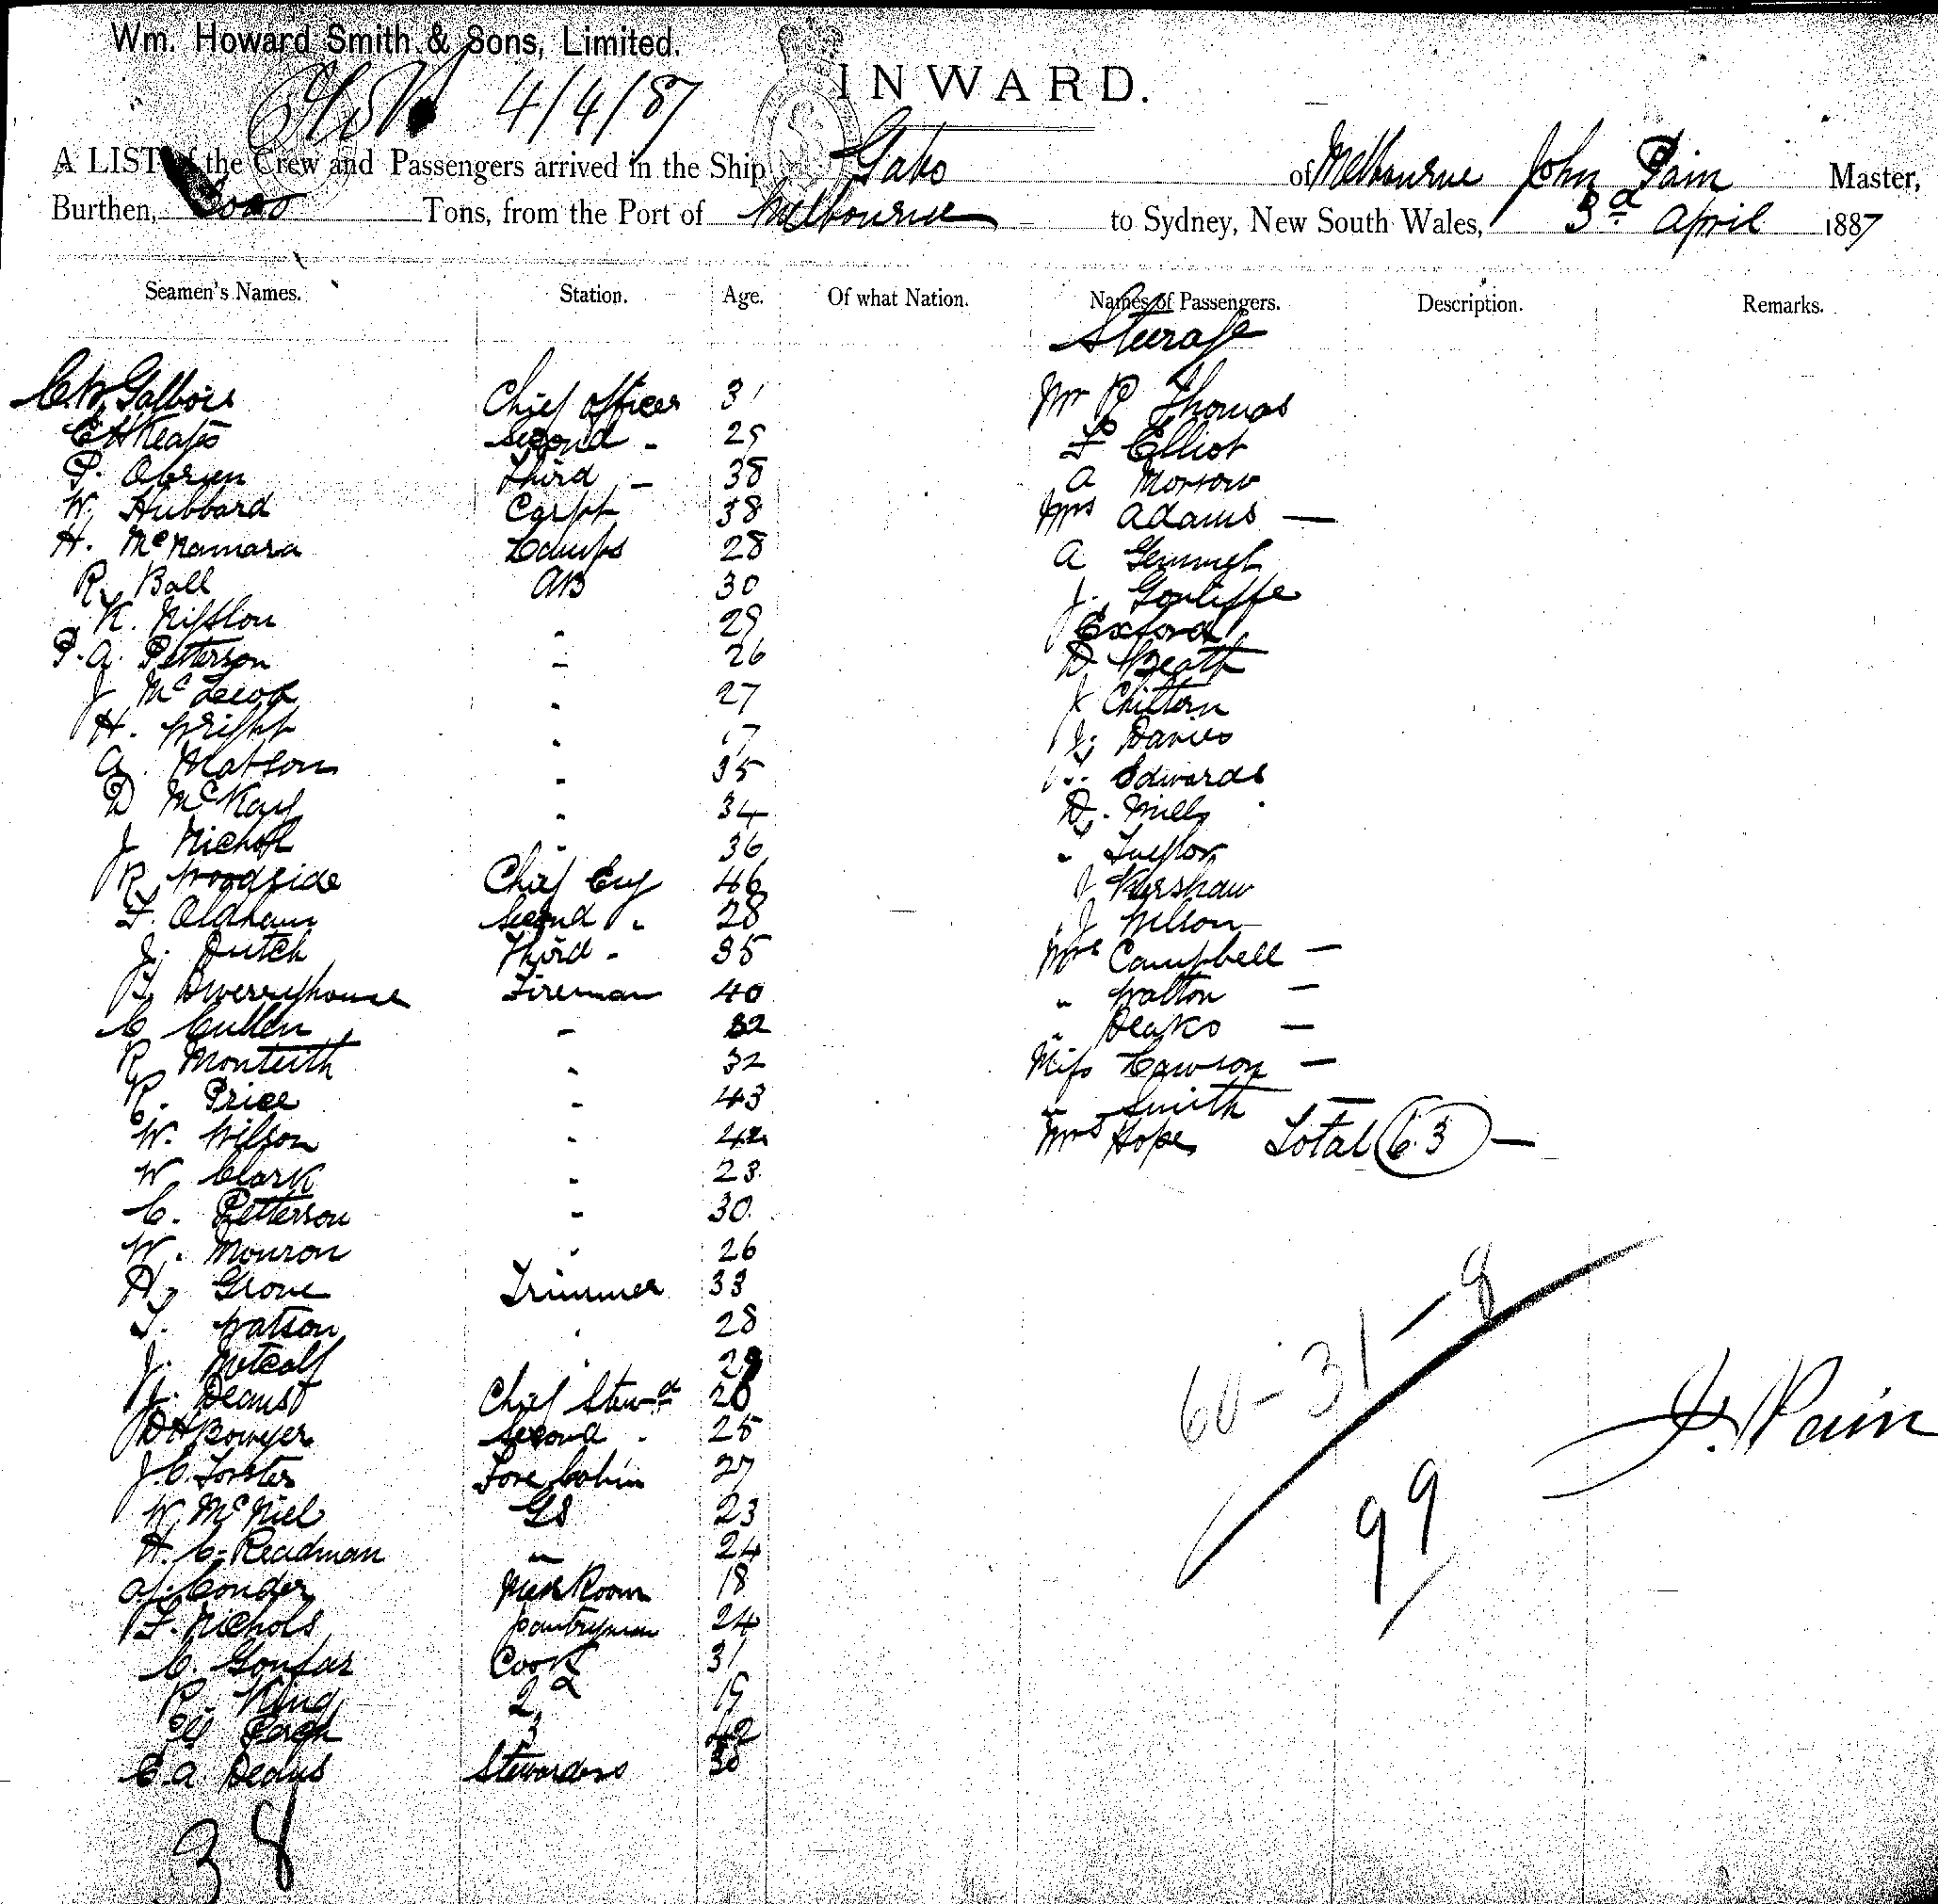 Wm. Howard Smith & Sons, Limited.
4/4/87
INWARD.
A LIST of the Crew and Passengers arrived in the Ship Gabo of Melbourne John Pain Master,
Burthen, Tons, from the Port of Melbourne to Sydney, New South Wales, 3d April 1887
Seamen's Names. Station. Age. Of what Nation. Names of Passengers. Description. Remarks.
Steerage
Chief Officer 31 Mr R Thomas
Second - 29 F Elliot
P. Obrien Third - 38 A Morrow
W. Hubbard Carpt 38 Mrs Adams —
H. McNamara Lamps 28 A Gemmel
R. Ball AB 30 J.
K. " 29 Oxford
P. A. Petterson " 26 D Heath
J McLeod " 27 J Chittern
H. Wright " J. Davies
A. Matson " 35 Edwards
D McKay " 34 D. Mills
J Nichol " 36 "
R Woodside Chief Eng 46 J Kershaw
F. Oldham Second " 28 J Wilson
J. Dutch Third - 35 Mrs Campbell —
T. Dwerryhouse Fireman 40 " Walton —
C Cullen - 32 " Deaks —
R Monteith " 32 Miss Lawson —
R. Price - 43 " Smith —
W. Wilson " 42 Mrs Hope Total 63 —
W Clark " 23
C. Petterson - 30
W. Monron " 26
H. Grove Trimmer 33
T. Watson " 28
J. Metcalf " 29
J. Deans Chief Stewd 26
D H Bowyer Second " 25
J. C. Forster Fore Cabin 27
W. McNiel GS 23
H. C. Readman " 24
A J. Conder Mess Room 18
F. Nichols pantryman 24
C. Cook 31
R. King 2d 19
3 42
E. A. Deans Stewardess 30
38
60 - 31 - 8
99
J. Pain